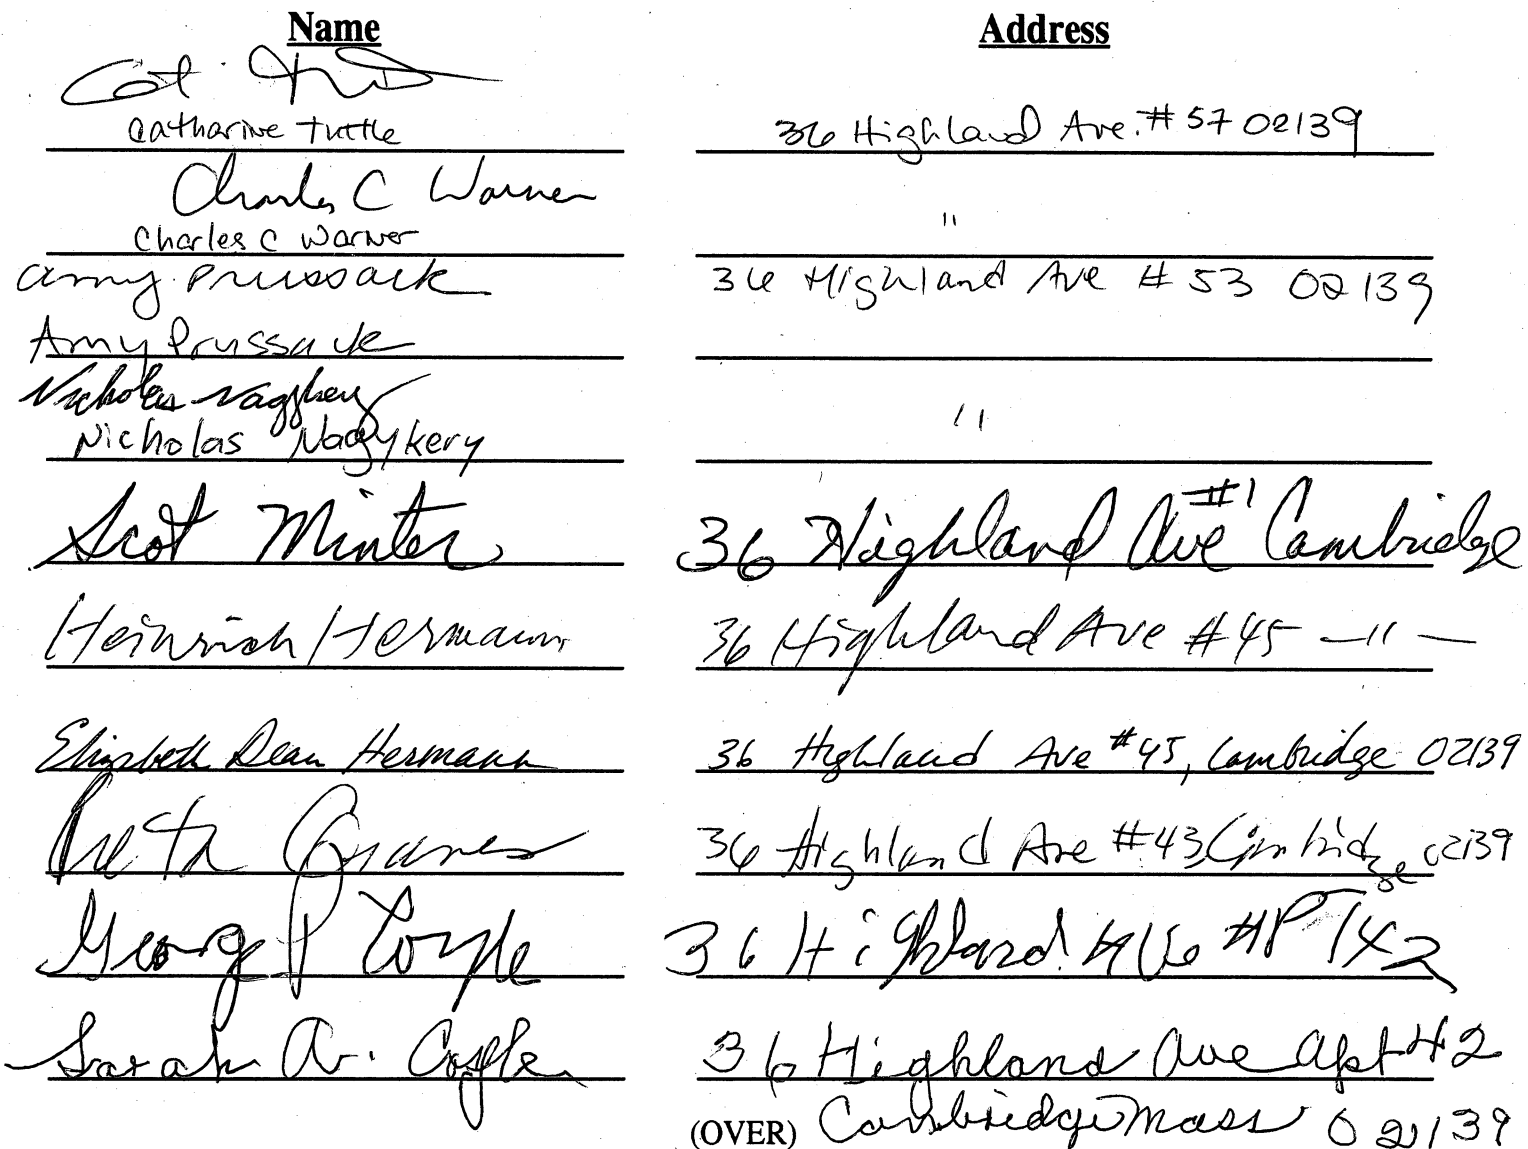 Name Address
Catharine Tuttle 36 Highland Ave. #57 02139
Charles C Warner
Charles C Warner "
Amy Prussack 36 Highland Ave #53 02139
Amy Prussack
Nicholas Nagykery
Nicholas Nagykery "
Scot Minter 36 Highland Ave #1 Cambridge
Heinrich Hermann 36 Highland Ave #45 — " —
Elizabeth Dean Hermann 36 Highland Ave #45, Cambridge 02139
Graves 36 Highland Ave #43, Cambridge 02139
George P Coyle 36 Highland Ave #42
Sarah A. Coyle 36 Highland Ave Apt 42
(OVER) Cambridge Mass 02139